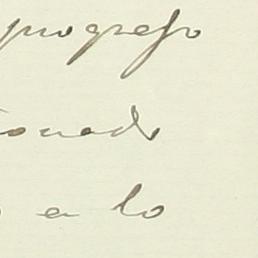 progreso
onado
a lo